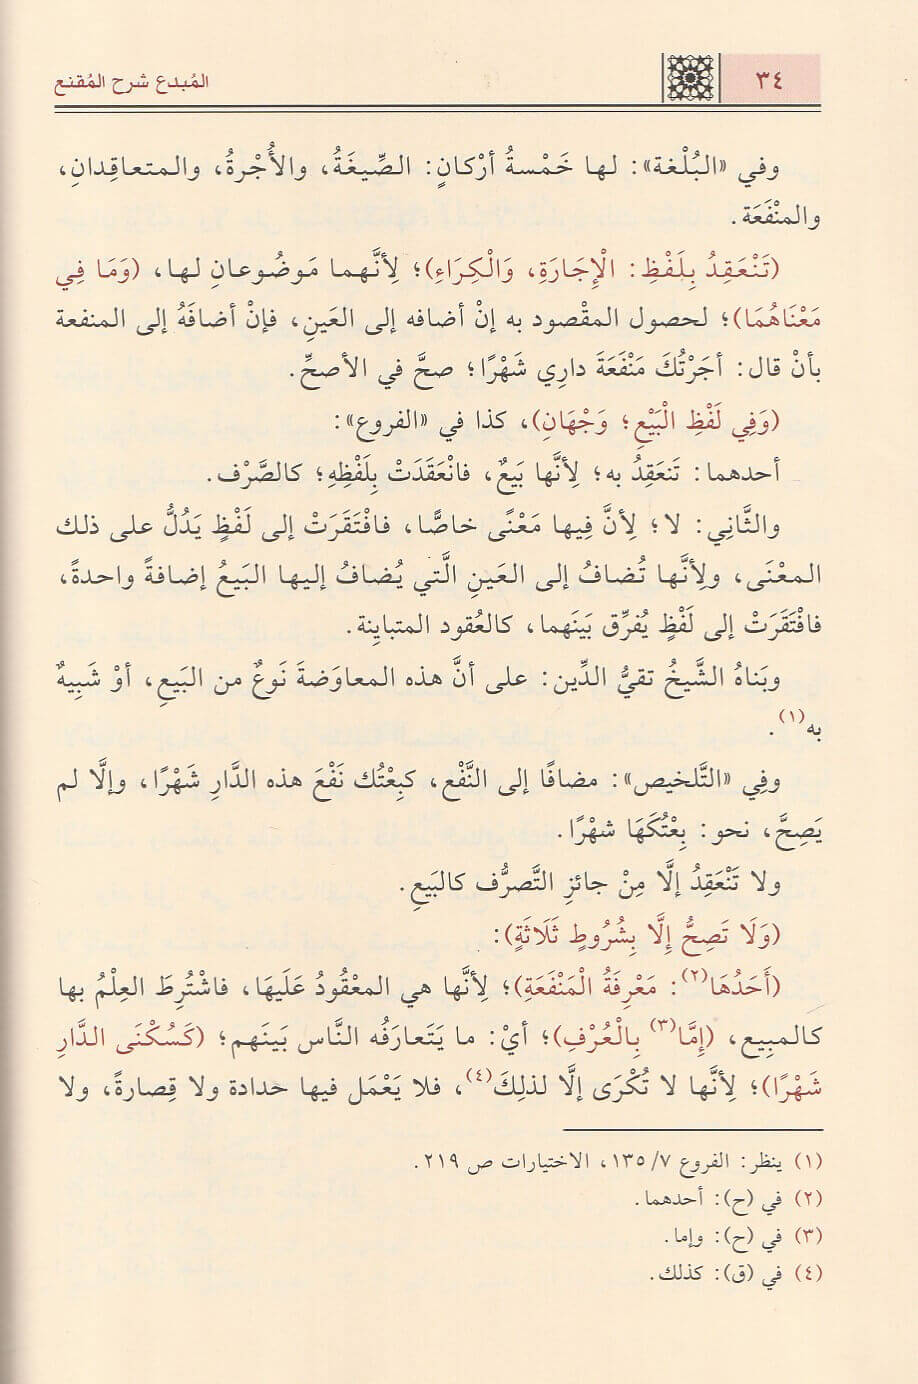 ٣٤
المُبدع شرح المُقنع
وفي «البُلْغة»: لها خَمْسةُ أرْكانٍ: الصِّيغَةُ، والأُجْرةُ، والمتعاقِدانِ،
والمنْفَعَة.
(تَنْعَقِدُ بِلَفْظِ: الْإِجَارَةِ، وَالْكِرَاءِ)؛ لِأنَّهما مَوضُوعانِ لها، (وَمَا فِي
مَعْنَاهُمَا)؛ لحصول المقْصود به إنْ أضافه إلى العَينِ، فإنْ أضافَهُ إلى المنفعة
بأنْ قال: أجَرْتُكَ مَنْفَعَةَ دارِي شَهْرًا؛ صحَّ في الأصحِّ.
(وَفِي لَفْظِ الْبَيْعِ؛ وَجْهَانِ)، كذا في «الفروع»:
أحدهما: تَنعَقِدُ به؛ لِأنَّها بَيعٌ، فانْعَقَدَتْ بِلَفْظِهِ؛ كالصَّرْف.
والثَّانِي: لا؛ لِأنَّ فِيها مَعْنًى خاصًّا، فافْتَقَرَتْ إلى لَفْظٍ يَدُلُّ على ذلك
المعْنَى، ولِأنَّها تُضافُ إلى العَينِ الَّتي يُضافُ إليها البَيعُ إضافةً واحدةً،
فافْتَقَرَتْ إلى لَفْظٍ يُفرِّق بَينَهما، كالعُقود المتباينة.
وبَناهُ الشَّيخُ تقيُّ الدِّين: على أنَّ هذه المعاوَضةَ نَوعٌ من البَيعِ، أوْ شَبِيهٌ
به(١).
وفِي «التَّلخيص»: مضافًا إلى النَّفْع، كبِعْتُك نَفْعَ هذه الدَّارِ شَهْرًا، وإلَّا لم
يَصِحَّ، نحو: بِعْتُكَهَا شهْرًا.
ولا تَنْعَقِدُ إلَّا مِنْ جائزِ التَّصرُّف كالبَيعِ.
(وَلَا تَصِحُّ إِلَّا بِشُرُوطٍ ثَلَاثَةٍ):
(أَحَدُهَا(٢): مَعْرِفَةُ الْمَنْفَعَةِ)؛ لِأنَّها هي المعْقُودُ عَلَيهَا، فاشْتُرِطَ العِلْمُ بها
كالمبِيع، (إِمَّا(٣) بِالْعُرْفِ)؛ أيْ: ما يَتَعارَفُه النَّاس بَينَهم؛ (كَسُكْنَى الدَّارِ
شَهْرًا)؛ لِأنَّها لا تُكْرَى إلَّا لذلِكَ(٤)، فلا يَعْمَل فيها حدادة ولا قِصارةً، ولا
(١) ينظر: الفروع ٧/ ١٣٥، الاختيارات ص ٢١٩.
(٢) في (ح): أحدهما.
(٣) في (ح): وإما.
(٤) في (ق): كذلك.